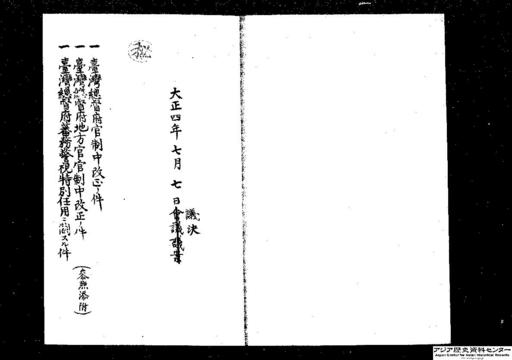 大正四年七月七日會議
議決
一臺灣總督府官制中改正ノ件
一臺灣總督府地方官官制中改正ノ件
一臺灣總督府蕃務警視特別任用ニ關スル件
(參照添附)
アジア歴史資料センター
Japan Center for Asian Historical Records